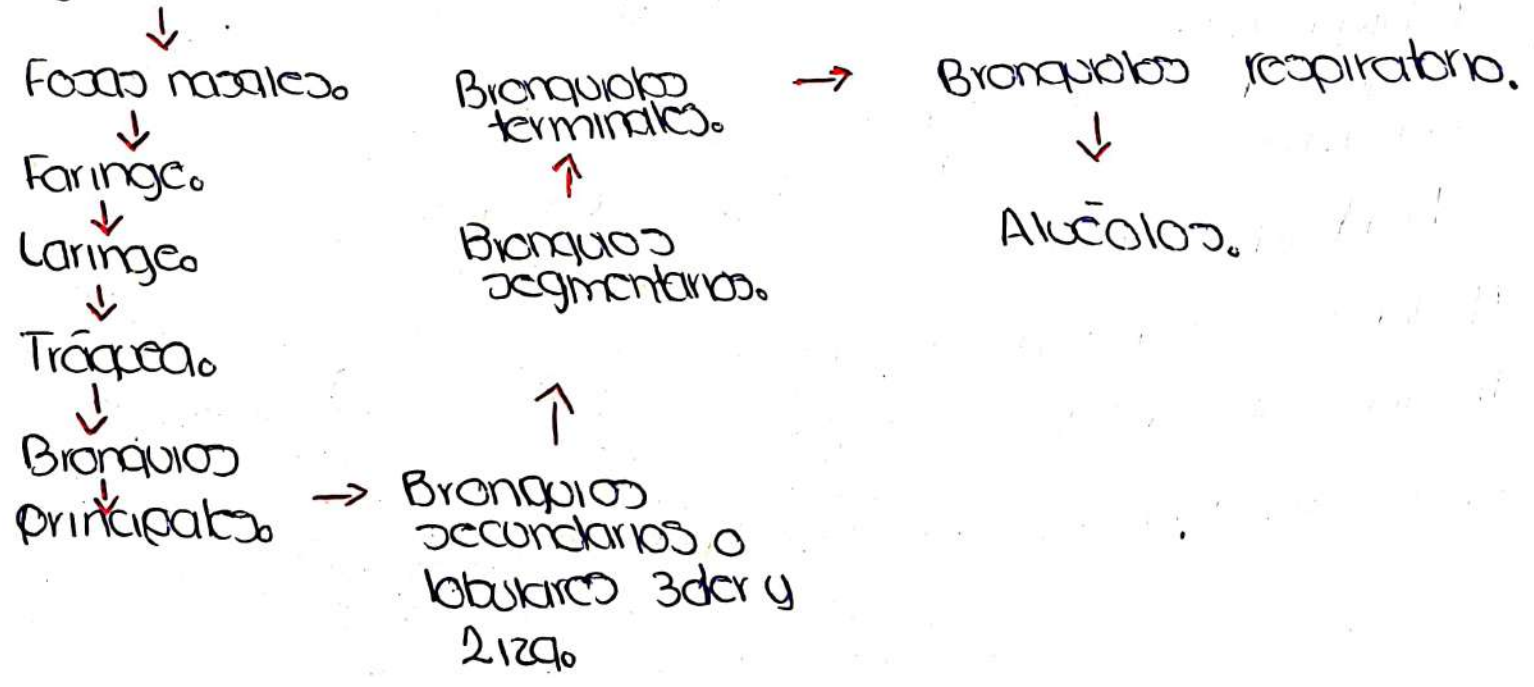 Fosas nasales.
Faringe.
Laringe.
Tráquea.
Bronquios
principales.
Bronquios
secundarios o
lobulares 3der y
2izq.
Bronquios
segmentarios.
Bronquiolos
terminales.
Bronquiolos respiratorio.
Alvéolos.